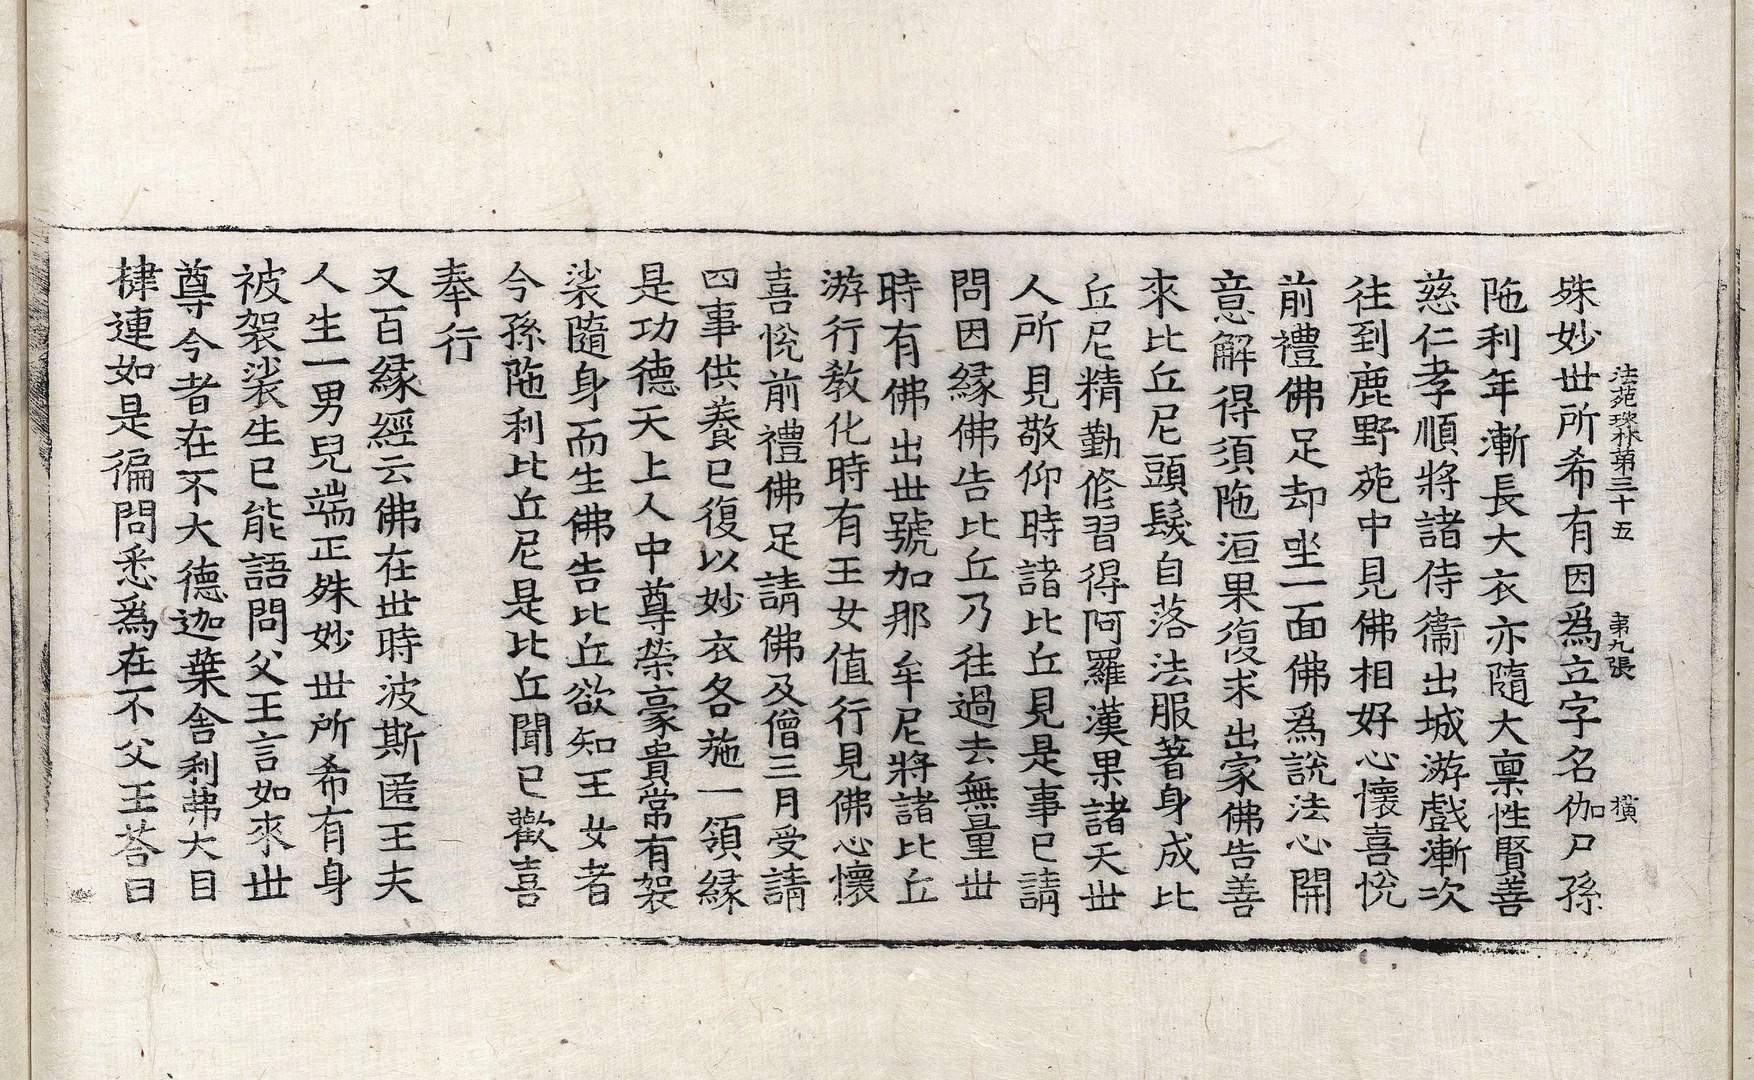 法苑珠林第三十五 第九張 橫
殊妙世所希有因爲立字名伽尸孫
陁利年漸長大衣亦隨大稟性賢善
慈仁孝順將諸侍衞出城游戲漸次
往到鹿野苑中見佛相好心懷喜悅
前禮佛足却坐一面佛爲說法心開
意解得須陁洹果復求出家佛告善
來比丘尼頭髮自落法服著身成比
丘尼精勤修習得阿羅漢果諸天世
人所見敬仰時諸比丘見是事已請
問因緣佛告比丘乃往過去無量世
時有佛出世號加那牟尼將諸比丘
游行教化時有王女值行見佛心懷
喜悅前禮佛足請佛及僧三月受請
四事供養已復以妙衣各施一領緣
是功德天上人中尊榮豪貴常有袈
裟隨身而生佛告比丘欲知王女者
今孫陁利比丘尼是比丘聞已歡喜
奉行
又百緣經云佛在世時波斯匿王夫
人生一男兒端正殊妙世所希有身
被袈裟生已能語問父王言如來世
尊今者在不大德迦葉舍利弗大目
揵連如是徧問悉爲在不父王荅曰